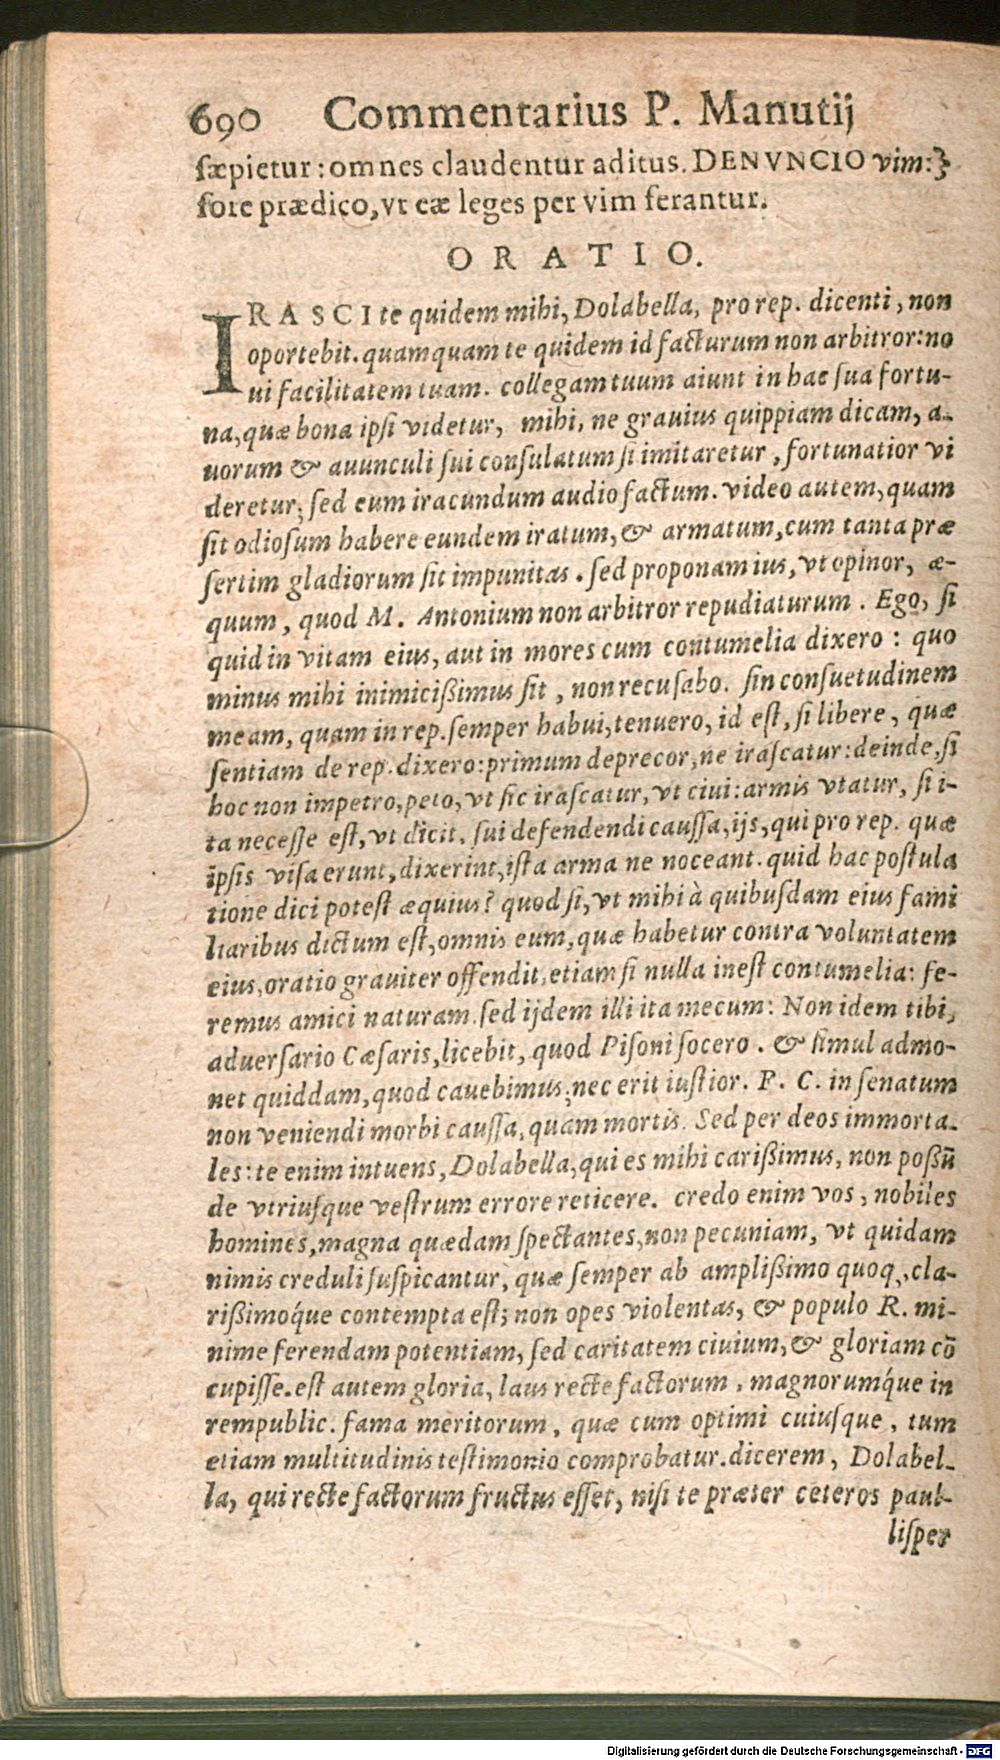 690 Commentarius P. Manutij
sæpietur: omnes claudentur aditus. DENVNCIO vim:}
fore prædico, vt eæ leges per vim ferantur.
ORATIO.
IRASCI te quidem mihi, Dolabella, pro rep. dicenti, non
oportebit. quamquam te quidem id facturum non arbitror: no
ui facilitatem tuam. collegam tuum aiunt in hac sua fortu-
na, quæ bona ipsi videtur, mihi, ne grauius quippiam dicam, a-
uorum & auunculi sui consulatum si imitaretur, fortunatior vi
deretur; sed eum iracundum audio factum. video autem, quam
sit odiosum habere eundem iratum, & armatum, cum tanta præ
sertim gladiorum sit impunitas. sed proponam ius, vt opinor, æ-
quum, quod M. Antonium non arbitror repudiaturum. Ego, si
quid in vitam eius, aut in mores cum contumelia dixero: quo
minus mihi inimicißimus sit, non recusabo. sin consuetudinem
meam, quam in rep. semper habui, tenuero, id est, si libere, quæ
sentiam de rep. dixero: primum deprecor, ne irascatur: deinde, si
hoc non impetro, peto, vt sic irascatur, vt ciui: armis vtatur, si i-
ta necesse est, vt dicit, sui defendendi caussa, ijs, qui pro rep. quæ
ipsis visa erunt, dixerint, ista arma ne noceant. quid hac postula
tione dici potest æquius? quod si, vt mihi à quibusdam eius fami
liaribus dictum est, omnis eum, quæ habetur contra voluntatem
eius, oratio grauiter offendit, etiam si nulla inest contumelia: fe-
remus amici naturam. sed ijdem illi ita mecum: Non idem tibi,
aduersario Cæsaris, licebit, quod Pisoni socero. & simul admo-
net quiddam, quod cauebimus; nec erit iustior. P. C. in senatum
non veniendi morbi caussa, quam mortis. Sed per deos immorta-
les: te enim intuens, Dolabella, qui es mihi carißimus, non poßũ
de vtriusque vestrum errore reticere. credo enim vos, nobiles
homines, magna quædam spectantes, non pecuniam, vt quidam
nimis creduli suspicantur, quæ semper ab amplißimo quoq., cla-
rißimoq́ue contempta est; non opes violentas, & populo R. mi-
nime ferendam potentiam, sed caritatem ciuium, & gloriam cõ
cupisse. est autem gloria, laus recte factorum, magnorumq́ue in
rempublic. fama meritorum, quæ cum optimi cuiusque, tum
etiam multitudinis testimonio comprobatur. dicerem, Dolabel-
la, qui recte factorum fructus esset, nisi te præter ceteros paul-
lisper
Digitalisierung gefördert durch die Deutsche Forschungsgemeinschaft - DFG